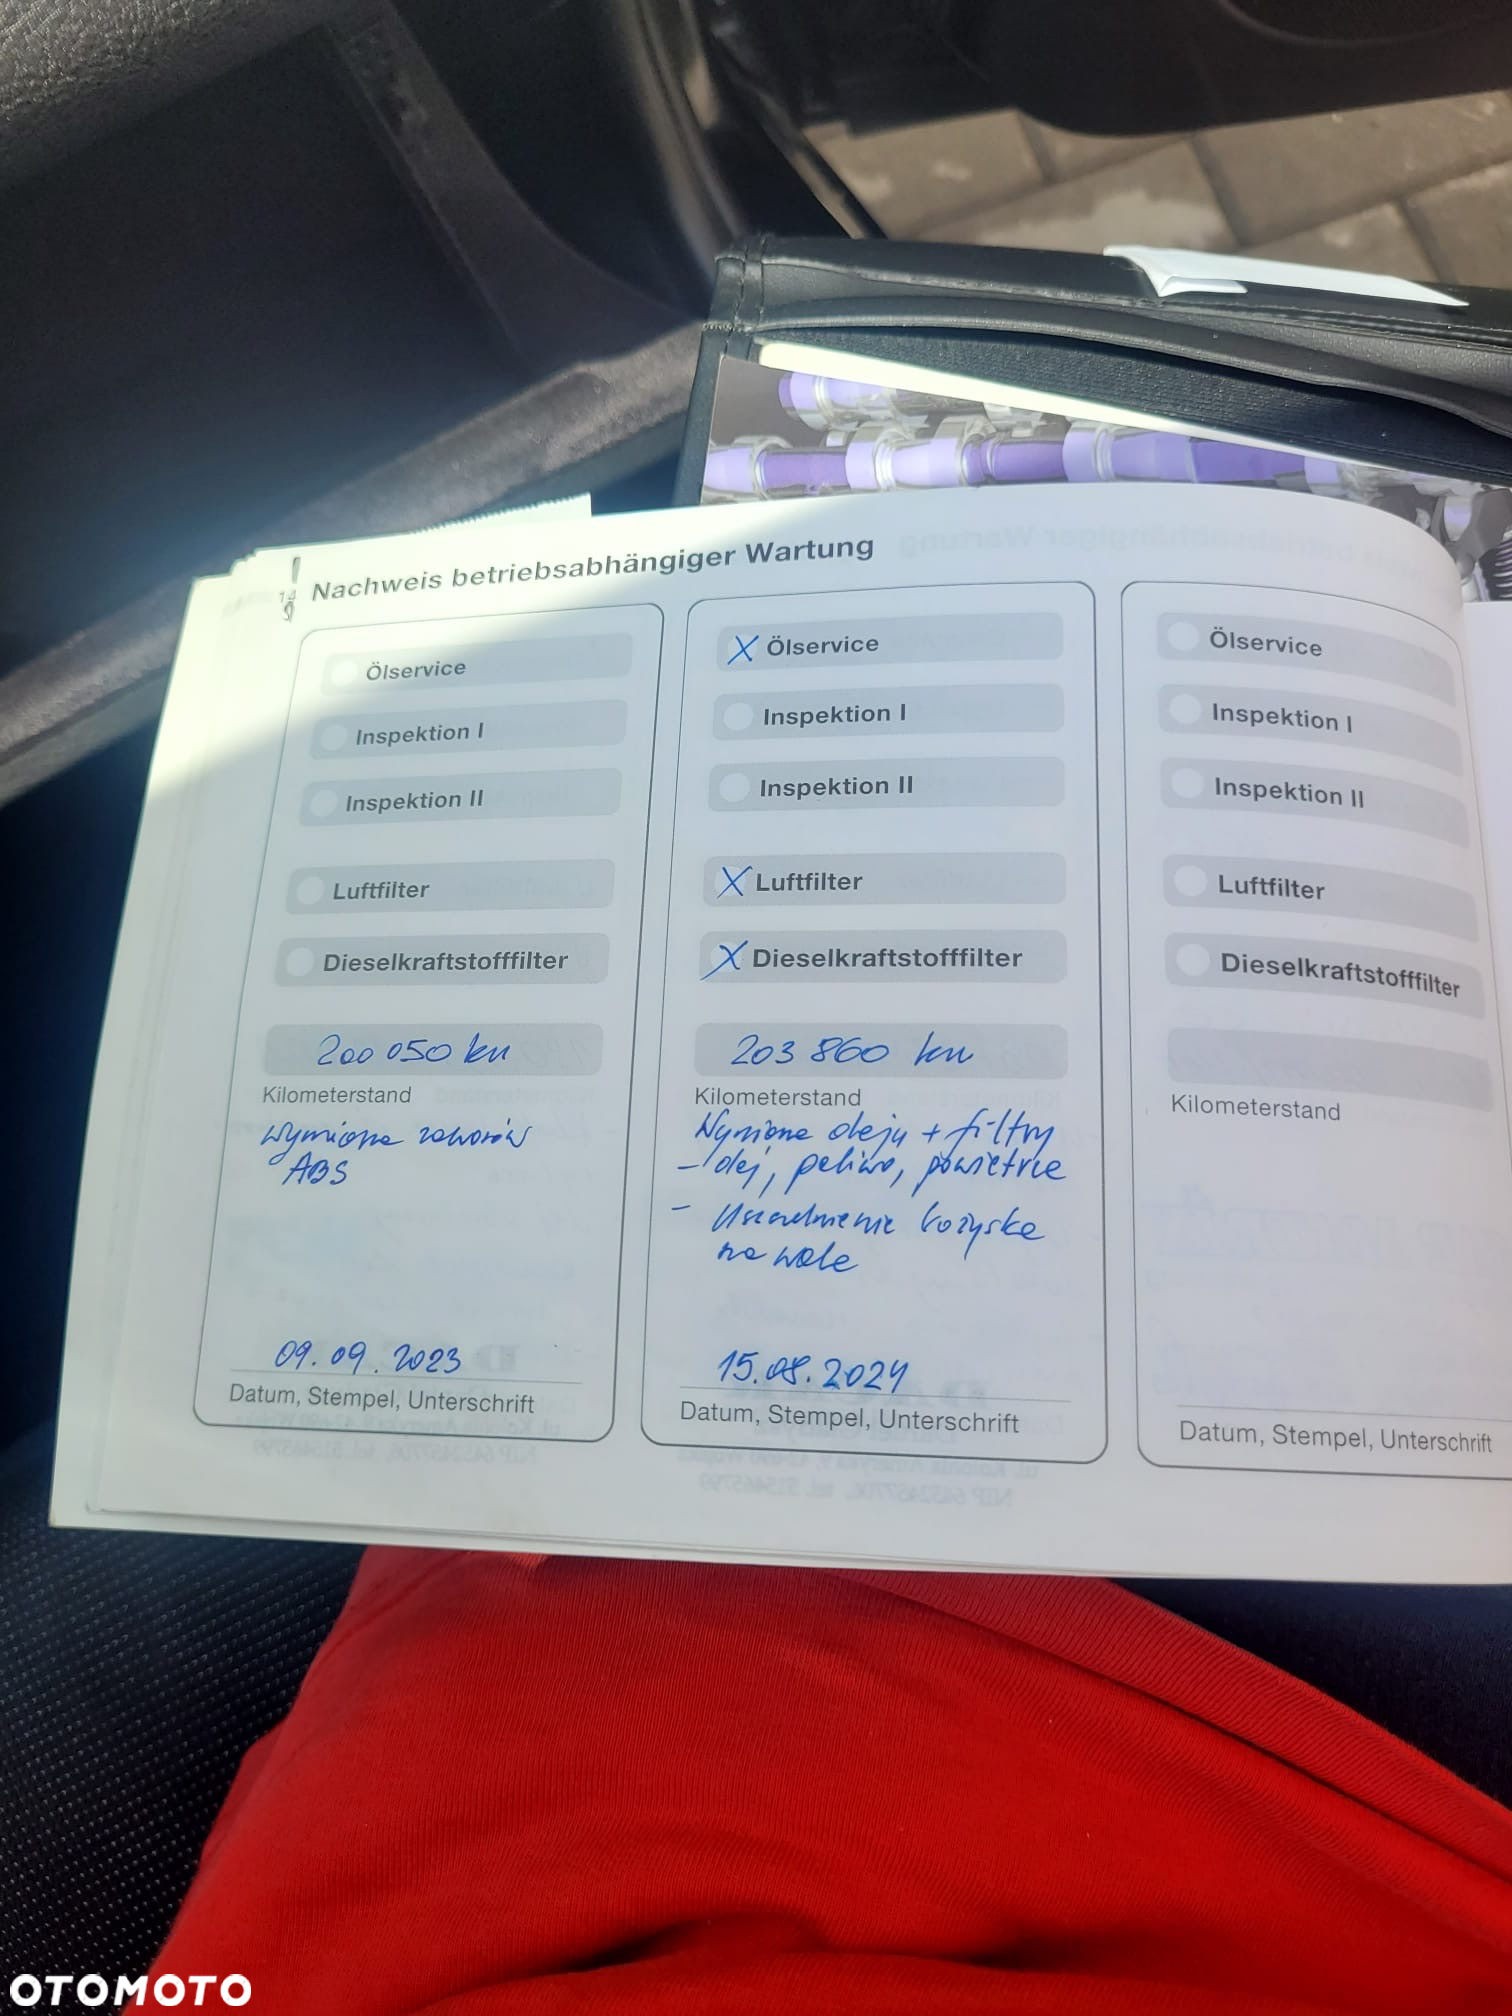 14
Nachweis betriebsabhängiger Wartung
Ölservice
Inspektion I
Inspektion II
Luftfilter
Dieselkraftstofffilter
200 050 km
Kilometerstand
Wymiana zaworów
ABS
09.09.2023
Datum, Stempel, Unterschrift
X Ölservice
Inspektion I
Inspektion II
X Luftfilter
X Dieselkraftstofffilter
203 860 km
Kilometerstand
Wymiana oleju + filtry
- olej, paliwo, powietrze
- Uszczelnienie łożyska
na wale
15.08.2024
Datum, Stempel, Unterschrift
Ölservice
Inspektion I
Inspektion II
Luftfilter
Dieselkraftstofffilter
Kilometerstand
Datum, Stempel, Unterschrift
OTOMOTO